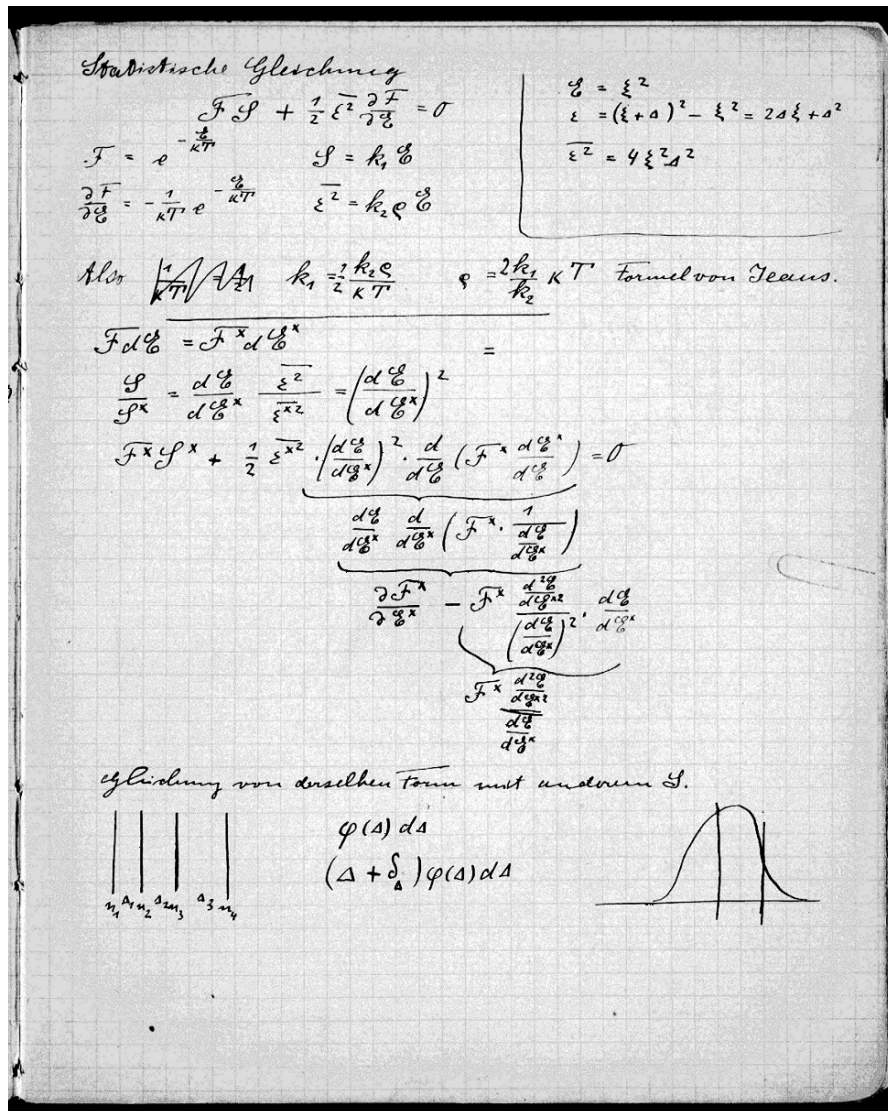 Statistische Gleichung
F𝒮 + 1/2 \overline{ε²} ∂F/∂𝓔 = 0
F = e^{-𝓔/κT}   𝒮 = k₁ 𝓔
∂F/∂𝓔 = - 1/κT e^{-𝓔/κT}   \overline{ε²} = k₂ ϱ 𝓔
𝓔 = ξ²
ε = (ξ + Δ)² - ξ² = 2Δξ + Δ²
\overline{ε²} = 4ξ²Δ²
Also   k₁ = 1/2 k₂ϱ/κT   ϱ = 2k₁/k₂ κT   Formel von Jeans.
F d𝓔 = F^x d𝓔^x   =
𝒮/𝒮^x = d𝓔/d𝓔^x   \overline{ε²}/\overline{ε^{x2}} = (d𝓔/d𝓔^x)²
F^x 𝒮^x + 1/2 \overline{ε^{x2}} · (d𝓔/d𝓔^x)² · d/d𝓔 (F^x d𝓔^x/d𝓔) = 0
d𝓔/d𝓔^x d/d𝓔^x (F^x · 1/(d𝓔/d𝓔^x))
∂F^x/∂𝓔^x - F^x (d²𝓔/d𝓔^{x2})/(d𝓔/d𝓔^x)² · d𝓔/d𝓔^x
F^x (d²𝓔/d𝓔^{x2})/(d𝓔/d𝓔^x)
Gleichung von derselben Form mit anderem 𝒮.
n₁ Δ₁ n₂ Δ₂ n₃ Δ₃ n₄
φ(Δ) dΔ
(Δ + δ_Δ) φ(Δ) dΔ